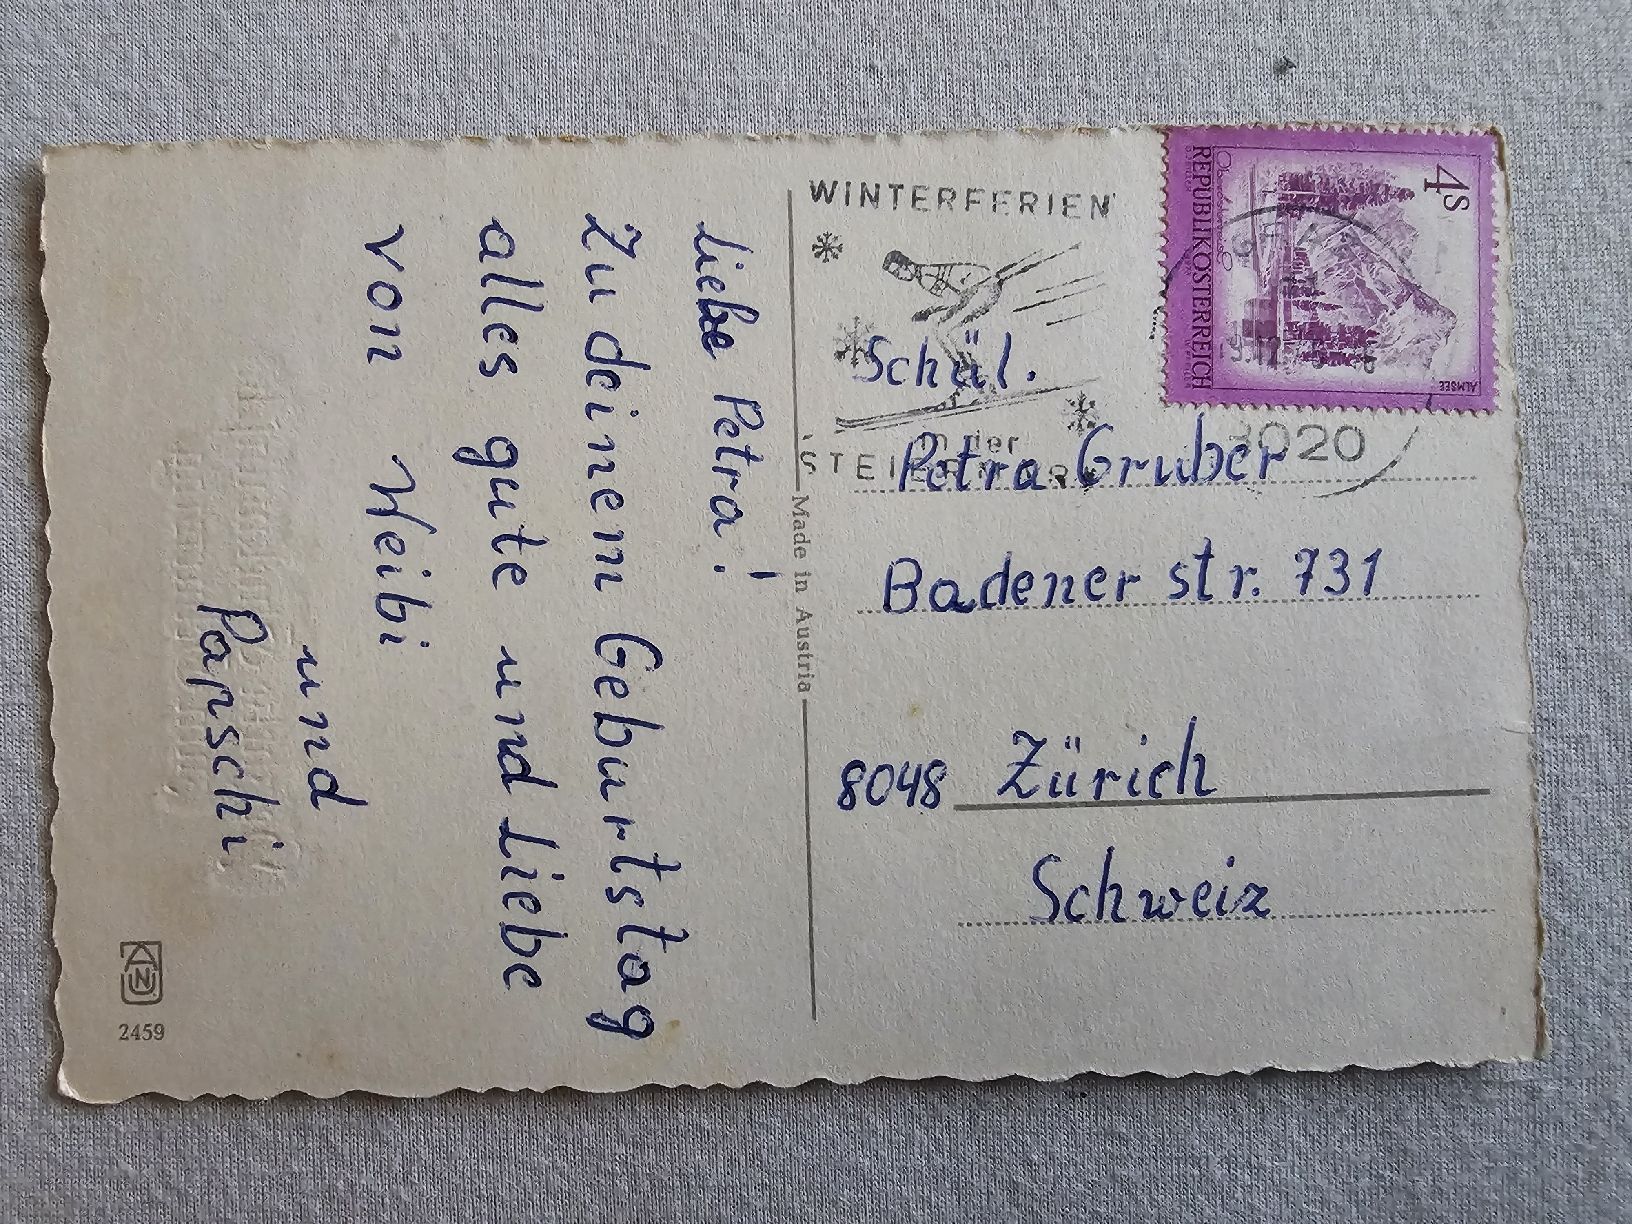 Liebe Petra!
Zu deinem Geburtstag
alles gute und Liebe
von Weibi
und
Parschi
2459
Made in Austria
WINTERFERIEN
in der
STEIERMARK
GRAZ
8020
4S
REPUBLIK ÖSTERREICH
ALMSEE
Schül.
Petra Gruber
Badener str. 731
8048 Zürich
Schweiz